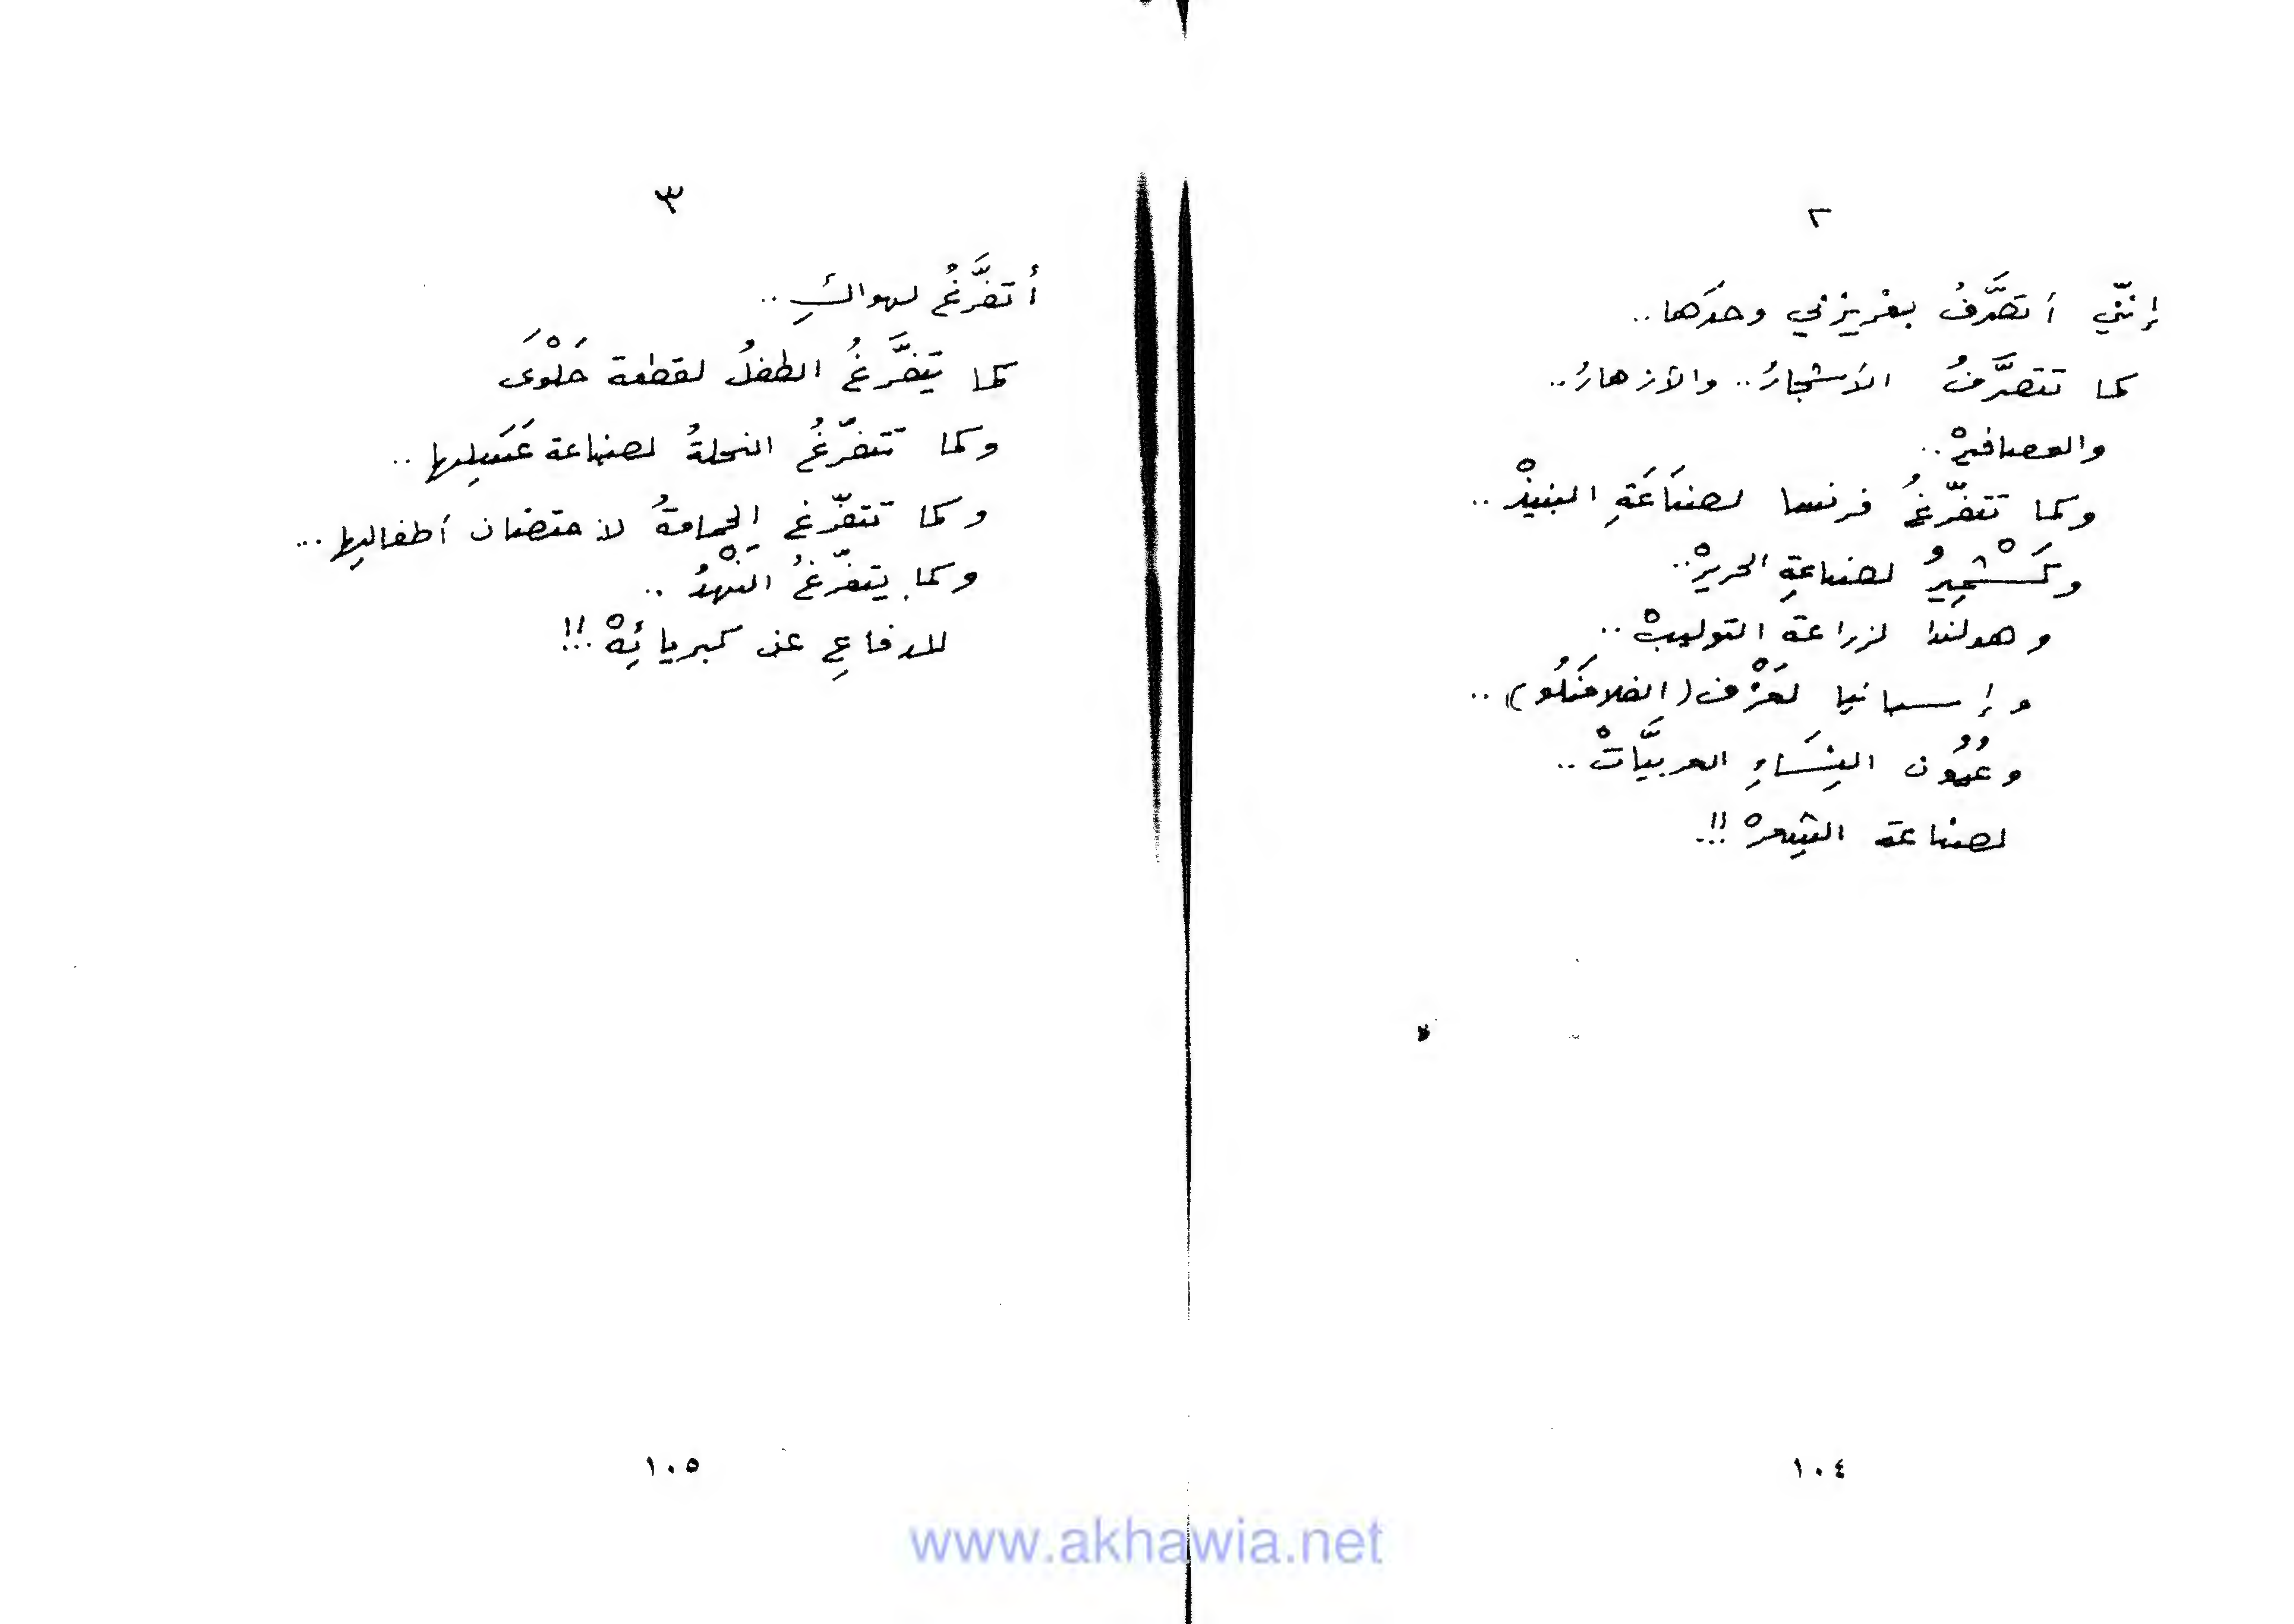 ٢
إنّني أتصَرَّفُ بغريزتي وحدَها..
كما تتصرَّفُ الأشجارُ.. والأزهارُ..
والعصافيرْ..
وكما تتفرّغُ فرنسا لصناَعَةِ النبيذْ..
وكَشْميرُ لصناعةِ الحريرْ..
وهولندا لزراعة التوليبْ..
وإسبانيا لعَزْف (الفلامنكُو)..
وعُيُون النِسَاءِ العربيَّاتْ..
لصناعة الشِعرْ!!.
١٠٤
٣
أتفرَّغُ لهواكِ..
كما يتفرَّغُ الطفلُ لقطعة حَلْوَى
وكما تتفرّغُ النحلةُ لصناعة عَسَلِها..
وكما تتفرّغ الحمامةُ لاحتضان أطفالِها...
وكما يتفرّغُ النَهْدُ..
للدفاعِ عن كبريائِهْ!!..
١٠٥
www.akhawia.net